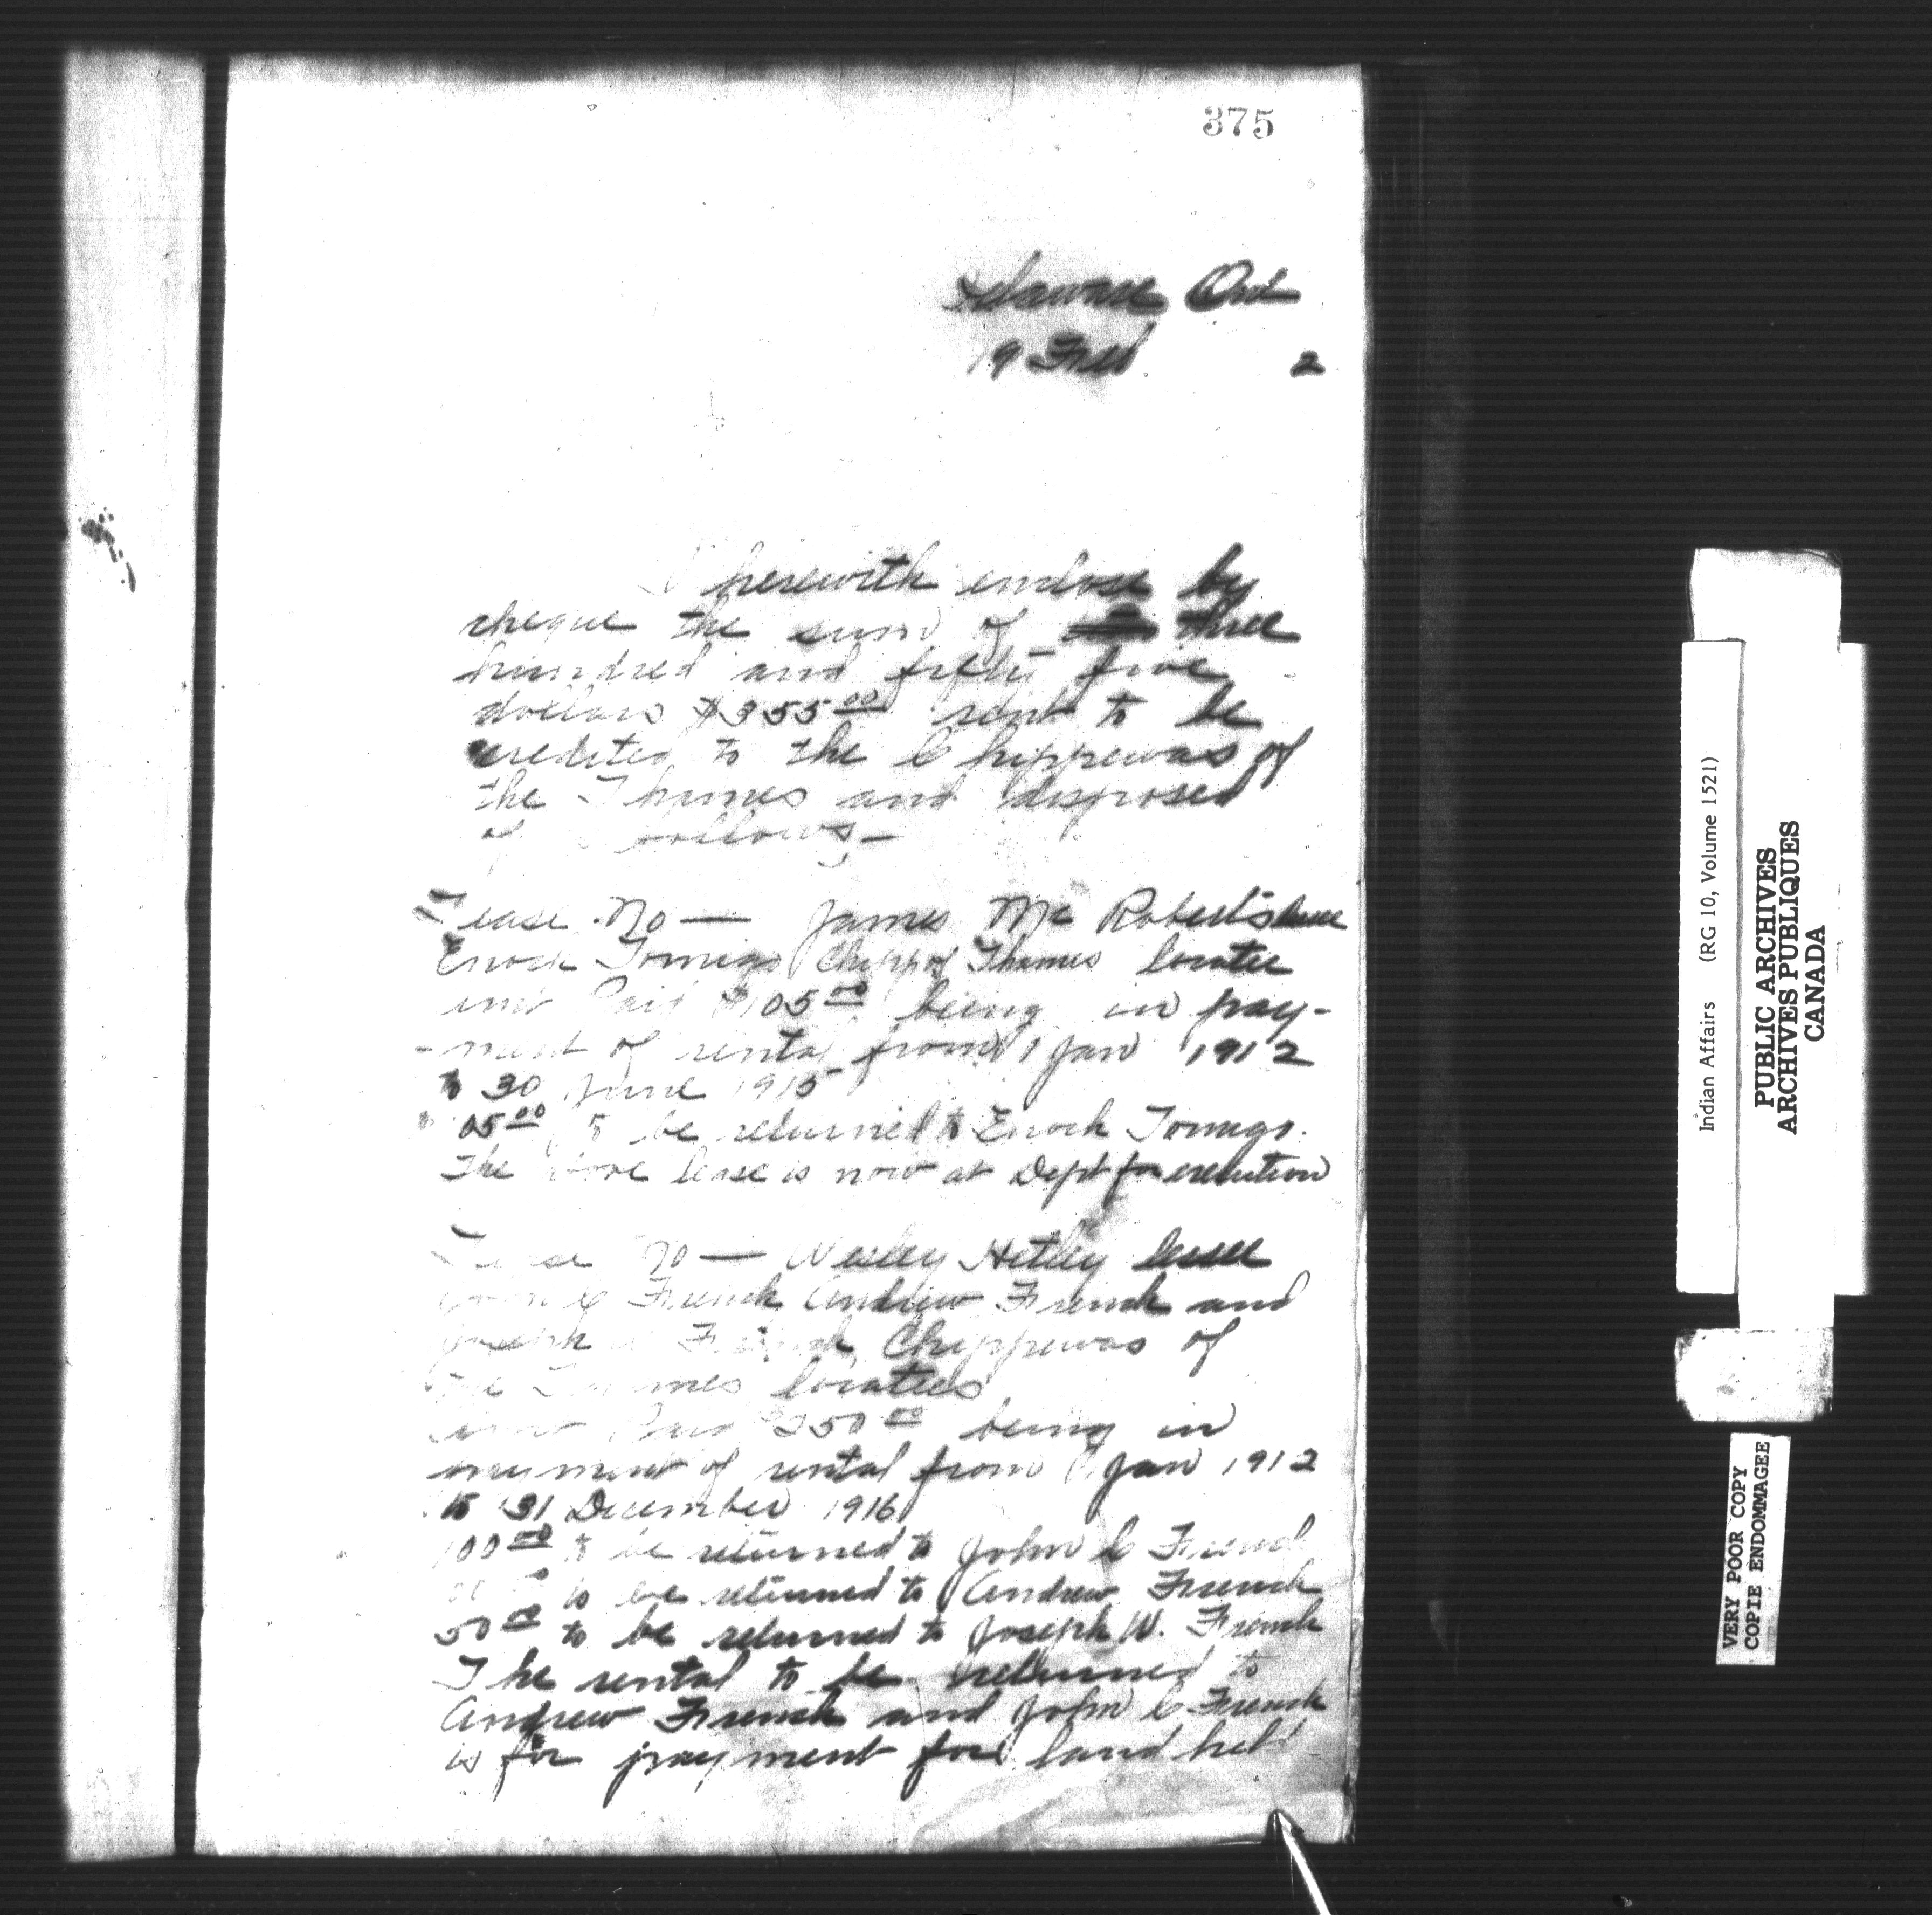 375
Delaware Ont
19 Feb 2
I herewith enclose by
cheque the sum of three
hundred and fifty five
dollars $355.00 rent to be
credited to the Chippewas of
the Thames and disposed
of follows,-
Lease No — James McRoberts lessee
Enoch Tomigo Chipp of Thames locatee
Paid $105.00 being in pay-
-ment of rental from 1 Jan 1912
to 30 June 1915
05.00 to be returned to Enoch Tomigo.
The above lease is now at Dept for execution
Lease No — Wesley Hetley lessee
John C French Andrew French and
Joseph French Chippewas of
the Thames locatees
Paid $250.00 being in
payment of rental from 1 Jan 1912
to 31 December 1916
100.00 to be returned to John C French
to be returned to Andrew French
50.00 to be returned to Joseph W. French
The rental to be returned to
Andrew French and John C French
is for payment for land held
Indian Affairs (RG 10, Volume 1521)
PUBLIC ARCHIVES
ARCHIVES PUBLIQUES
CANADA
VERY POOR COPY
COPIE ENDOMMAGEE